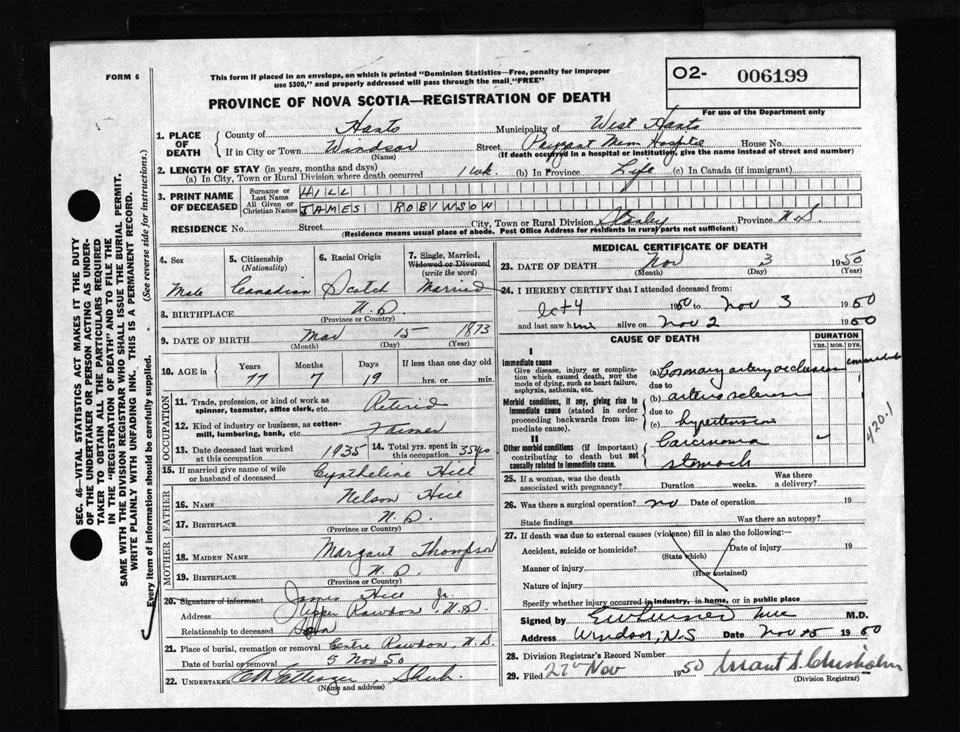 FORM 6
This form if placed in an envelope, on which is printed "Dominion Statistics—Free, penalty for improper
use $300," and properly addressed will pass through the mail "FREE"
O2- 006199
PROVINCE OF NOVA SCOTIA—REGISTRATION OF DEATH
For use of the Department only
1. PLACE OF DEATH
County of Hants Municipality of West Hants
If in City or Town Windsor Street Payzant Mem Hospital House No.
(Name) (If death occurred in a hospital or institution, give the name instead of street and number)
2. LENGTH OF STAY (in years, months and days)
(a) In City, Town or Rural Division where death occurred 1 wk. (b) In Province Life (c) In Canada (if immigrant)
3. PRINT NAME OF DECEASED
Surname or Last Name HILL
All Given or Christian Names JAMES ROBINSON
RESIDENCE No. Street City, Town or Rural Division Stanley Province N.S.
(Residence means usual place of abode. Post Office Address for residents in rural parts not sufficient)
4. Sex
Male
5. Citizenship
(Nationality)
Canadian
6. Racial Origin
Scotch
7. Single, Married,
Widowed or Divorced
(write the word)
Married
8. BIRTHPLACE N.S.
(Province or Country)
9. DATE OF BIRTH Mar 15 1873
(Month) (Day) (Year)
10. AGE in Years Months Days If less than one day old
77 7 19 hrs. or min.
OCCUPATION
11. Trade, profession, or kind of work as
spinner, teamster, office clerk, etc. Retired
12. Kind of industry or business, as cotton-
mill, lumbering, bank, etc. Farmer
13. Date deceased last worked
at this occupation 1935
14. Total yrs. spent in
this occupation 35 yrs
15. If married give name of wife
or husband of deceased Hill
FATHER
16. Name Nelson Hill
17. Birthplace N.S.
(Province or Country)
MOTHER
18. Maiden Name Margaret Thompson
19. Birthplace N.S.
(Province or Country)
20. Signature of informant James Hill Jr.
Address Upper Rawdon, N.S.
Relationship to deceased Son
21. Place of burial, cremation or removal Centre Rawdon, N.S.
Date of burial or removal 5 Nov 50
22. Undertaker Shub.
(Name and address)
MEDICAL CERTIFICATE OF DEATH
23. DATE OF DEATH Nov 3 1950
(Month) (Day) (Year)
24. I HEREBY CERTIFY that I attended deceased from:
Oct 4 1950 to Nov 3 1950
and last saw him alive on Nov 2 1950
CAUSE OF DEATH
DURATION
YRS. MOS. DYS.
I
Immediate cause
Give disease, injury or complica-
tion which caused death, NOT the
mode of dying, such as heart failure,
asphyxia, asthenia, etc.
(a) Coronary artery occlusion
due to
Morbid conditions, if any, giving rise to
immediate cause (stated in order
proceeding backwards from im-
mediate cause).
(b) arterio sclerosis
due to
(c) hypertension
II
Other morbid conditions (if important)
contributing to death but not
causally related to immediate cause.
Carcinoma
stomach
420.1
25. If a woman, was the death
associated with pregnancy? Duration weeks. Was there
a delivery?
26. Was there a surgical operation? no Date of operation 19
State findings Was there an autopsy?
27. If death was due to external causes (violence) fill in also the following:
Accident, suicide or homicide? Date of injury 19
(State which)
Manner of injury
(How sustained)
Nature of injury
Specify whether injury occurred in industry, in home, or in public place
Signed by M.D.
Address Windsor, N.S. Date Nov 1950
28. Division Registrar's Record Number
29. Filed 27th Nov 1950 Grant S. Chisholm
(Division Registrar)
SEC. 46—VITAL STATISTICS ACT MAKES IT THE DUTY
OF THE UNDERTAKER OR PERSON ACTING AS UNDER-
TAKER TO OBTAIN ALL THE PARTICULARS REQUIRED
IN THE "REGISTRATION OF DEATH" AND TO FILE THE
SAME WITH THE DIVISION REGISTRAR WHO SHALL ISSUE THE BURIAL PERMIT.
WRITE PLAINLY WITH UNFADING INK. THIS IS A PERMANENT RECORD.
Every item of information should be carefully supplied. (See reverse side for instructions.)